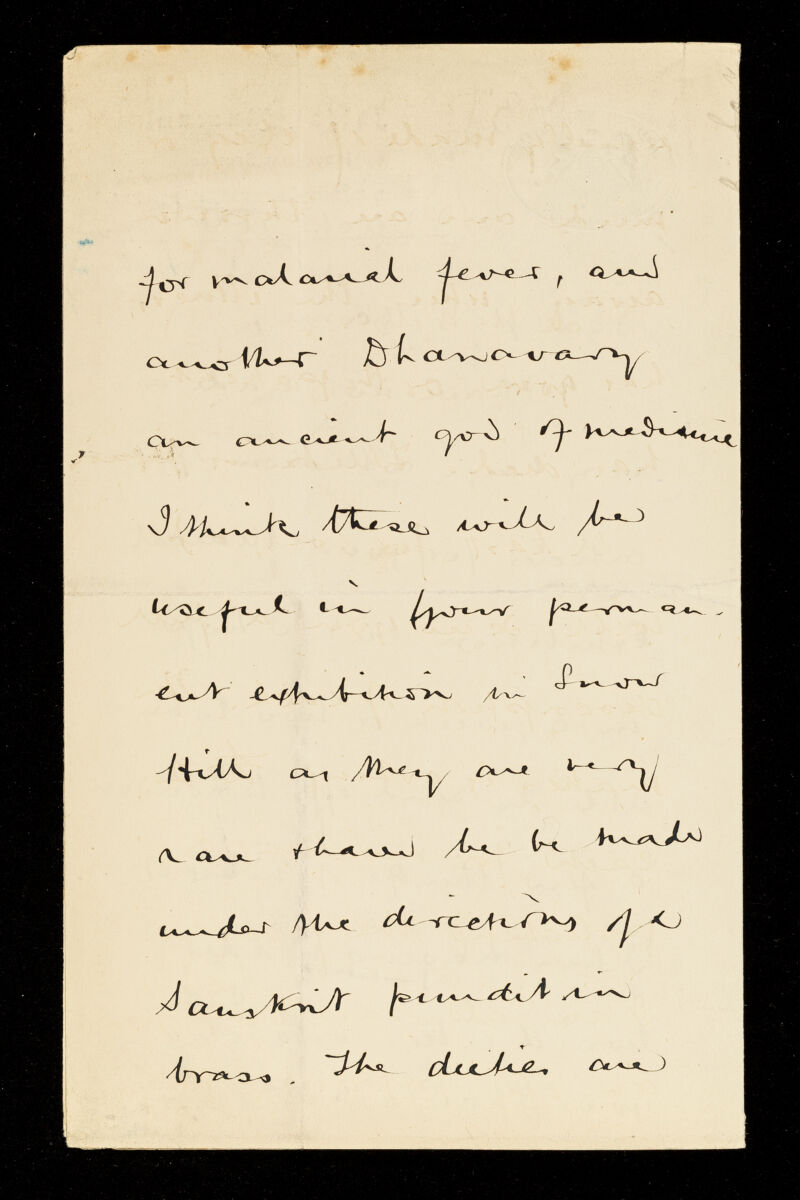 for malarial fever, and
another Dhanavary
an ancient god of medicine
I think these will be
useful in your perman-
ent exhibition in Snow
Hill as they are very
rare & have be be made
under the directions of a
Sanskrit pundit in
brass. The dieties are